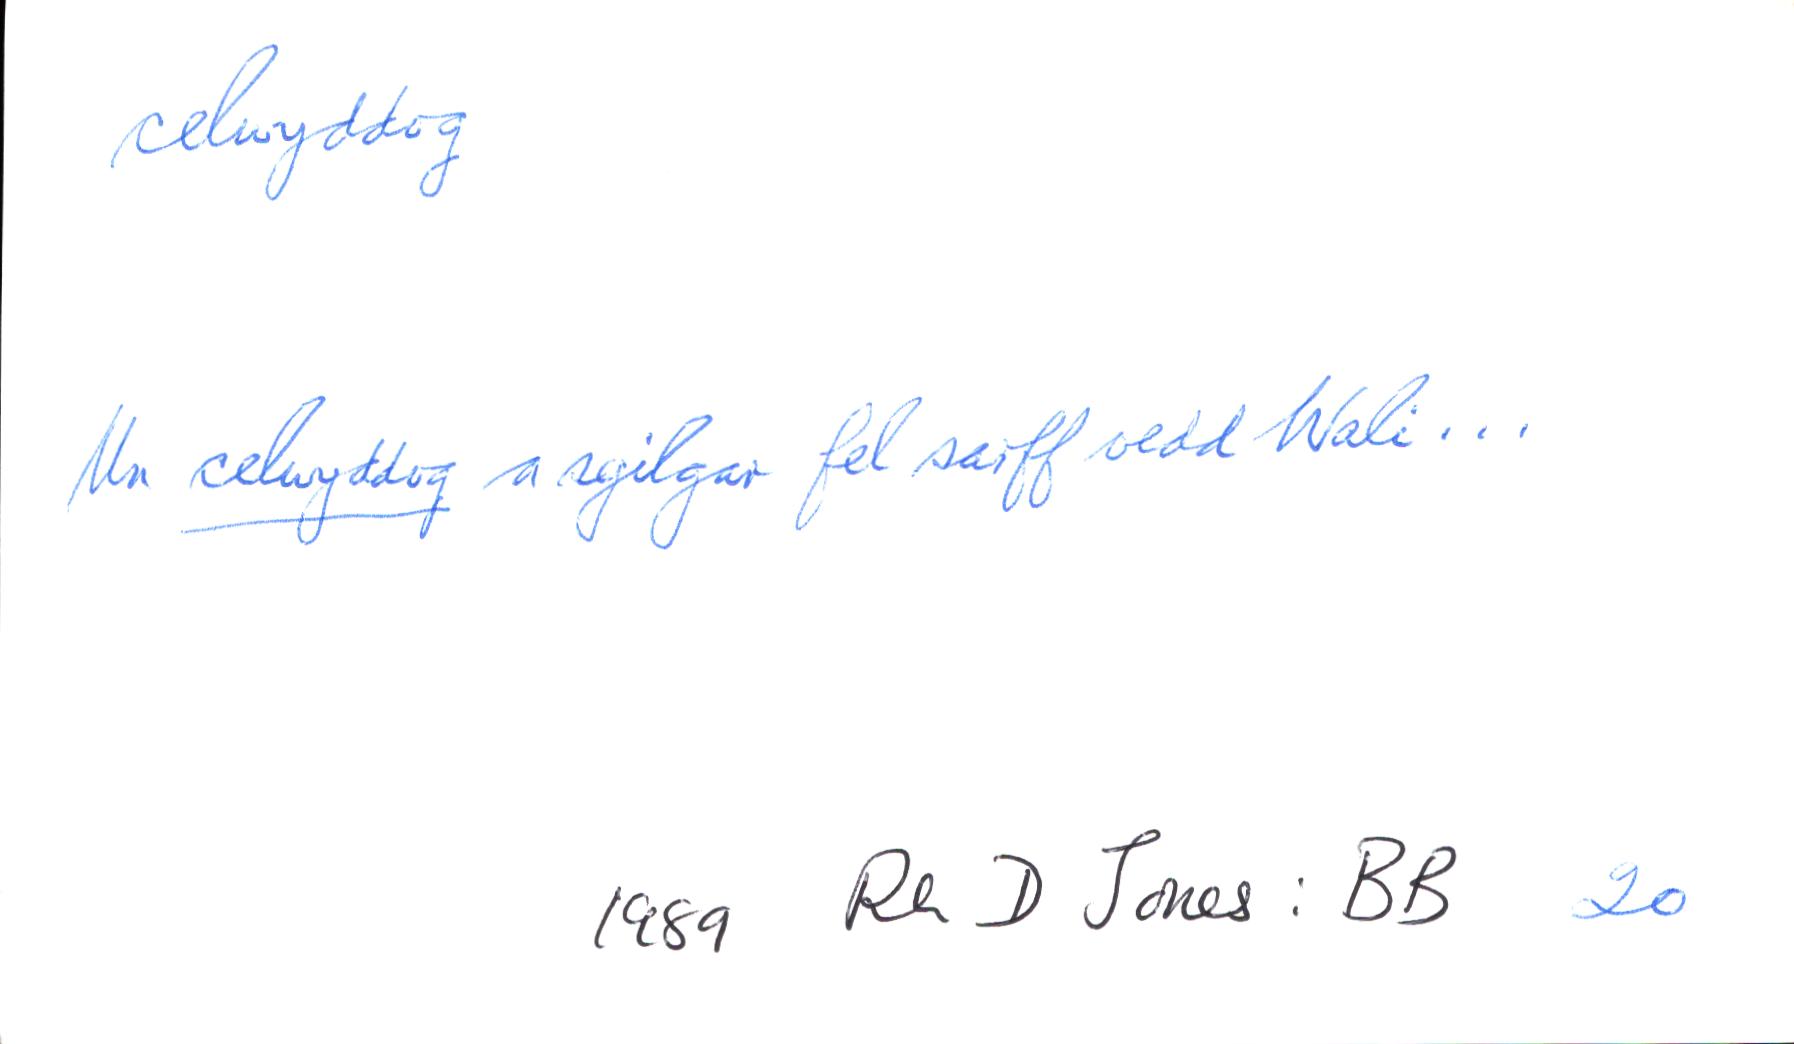 celwyddog
Un celwyddog a sgilgar fel sarff oedd Wali...
1989 Rh D Jones: BB 20